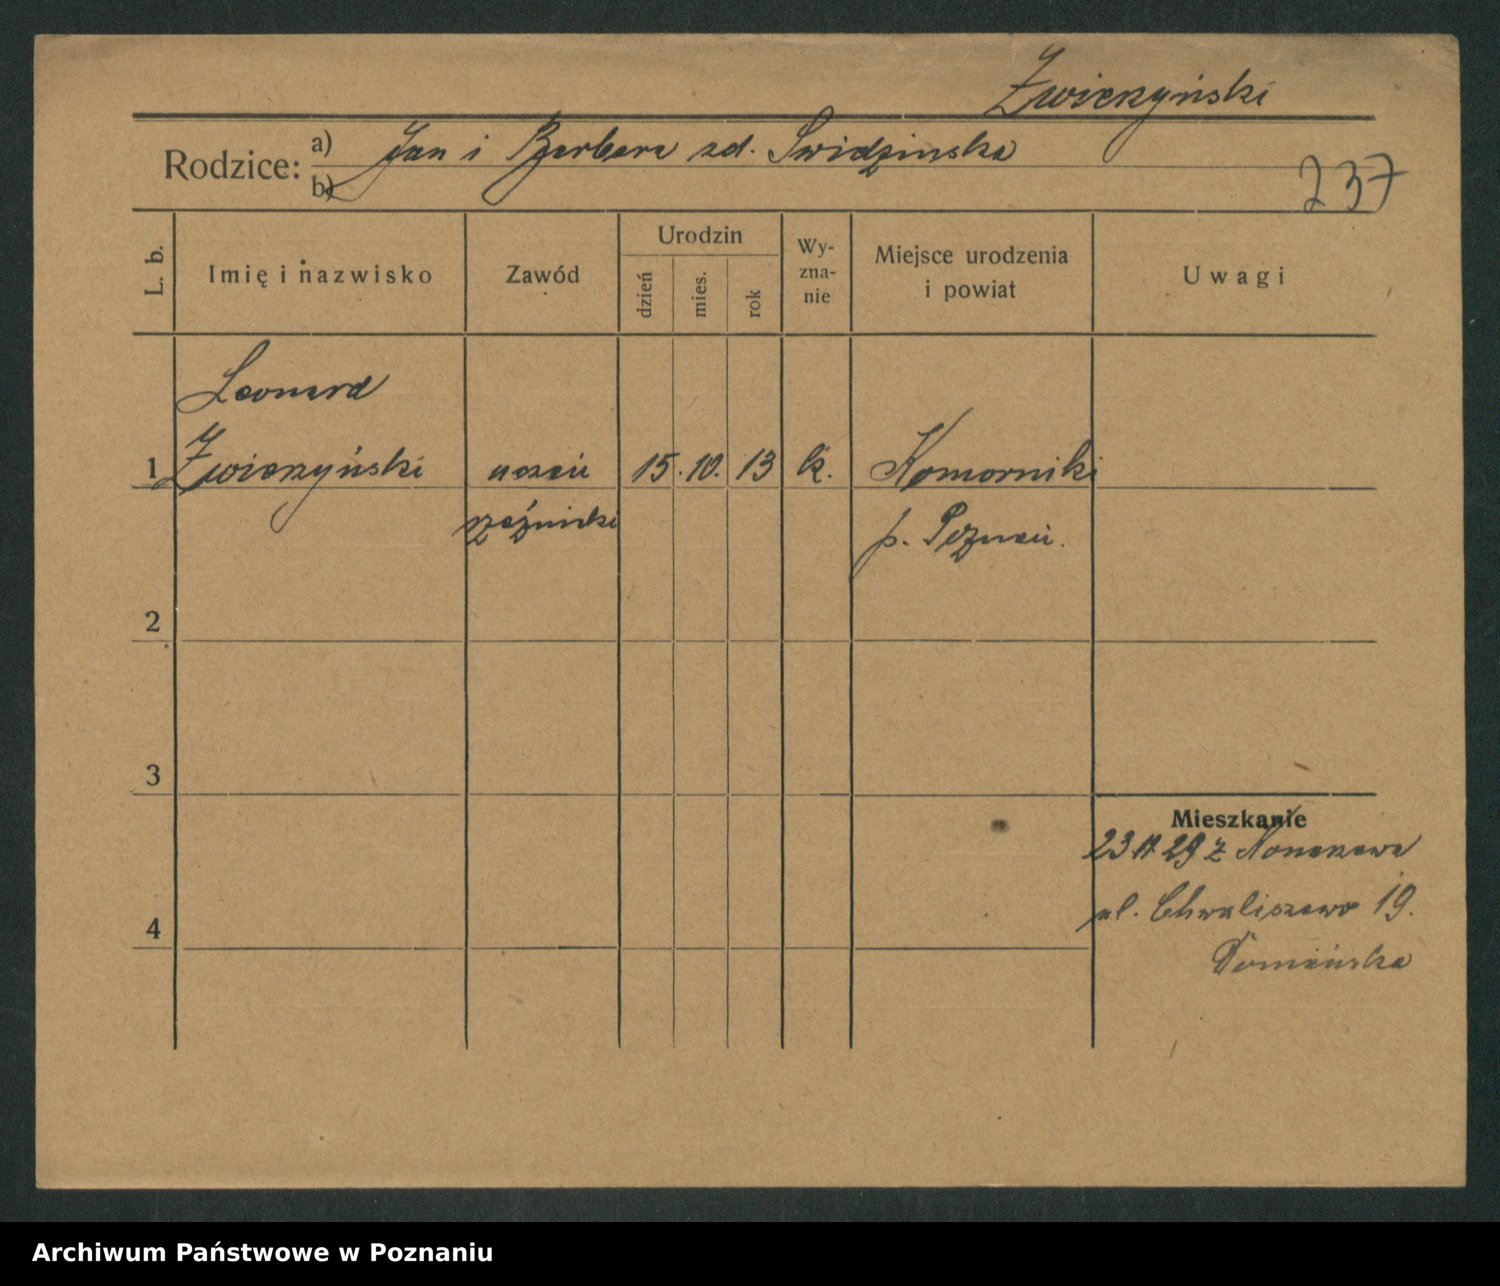 Zwierzyński
Rodzice: a) Jan i Barbara zd. Swidzinska
b)
237
L. b. Imię i nazwisko Zawód Urodzin dzień mies. rok Wyznanie Miejsce urodzenia i powiat Uwagi
Leonard
1 Zwierzyński uczeń 15. 10. 13 k. Komorniki
rzeźnicki p. Poznań.
2
3
Mieszkanie
23 29 z
ul. Chwaliszewo 19.
4
Archiwum Państwowe w Poznaniu